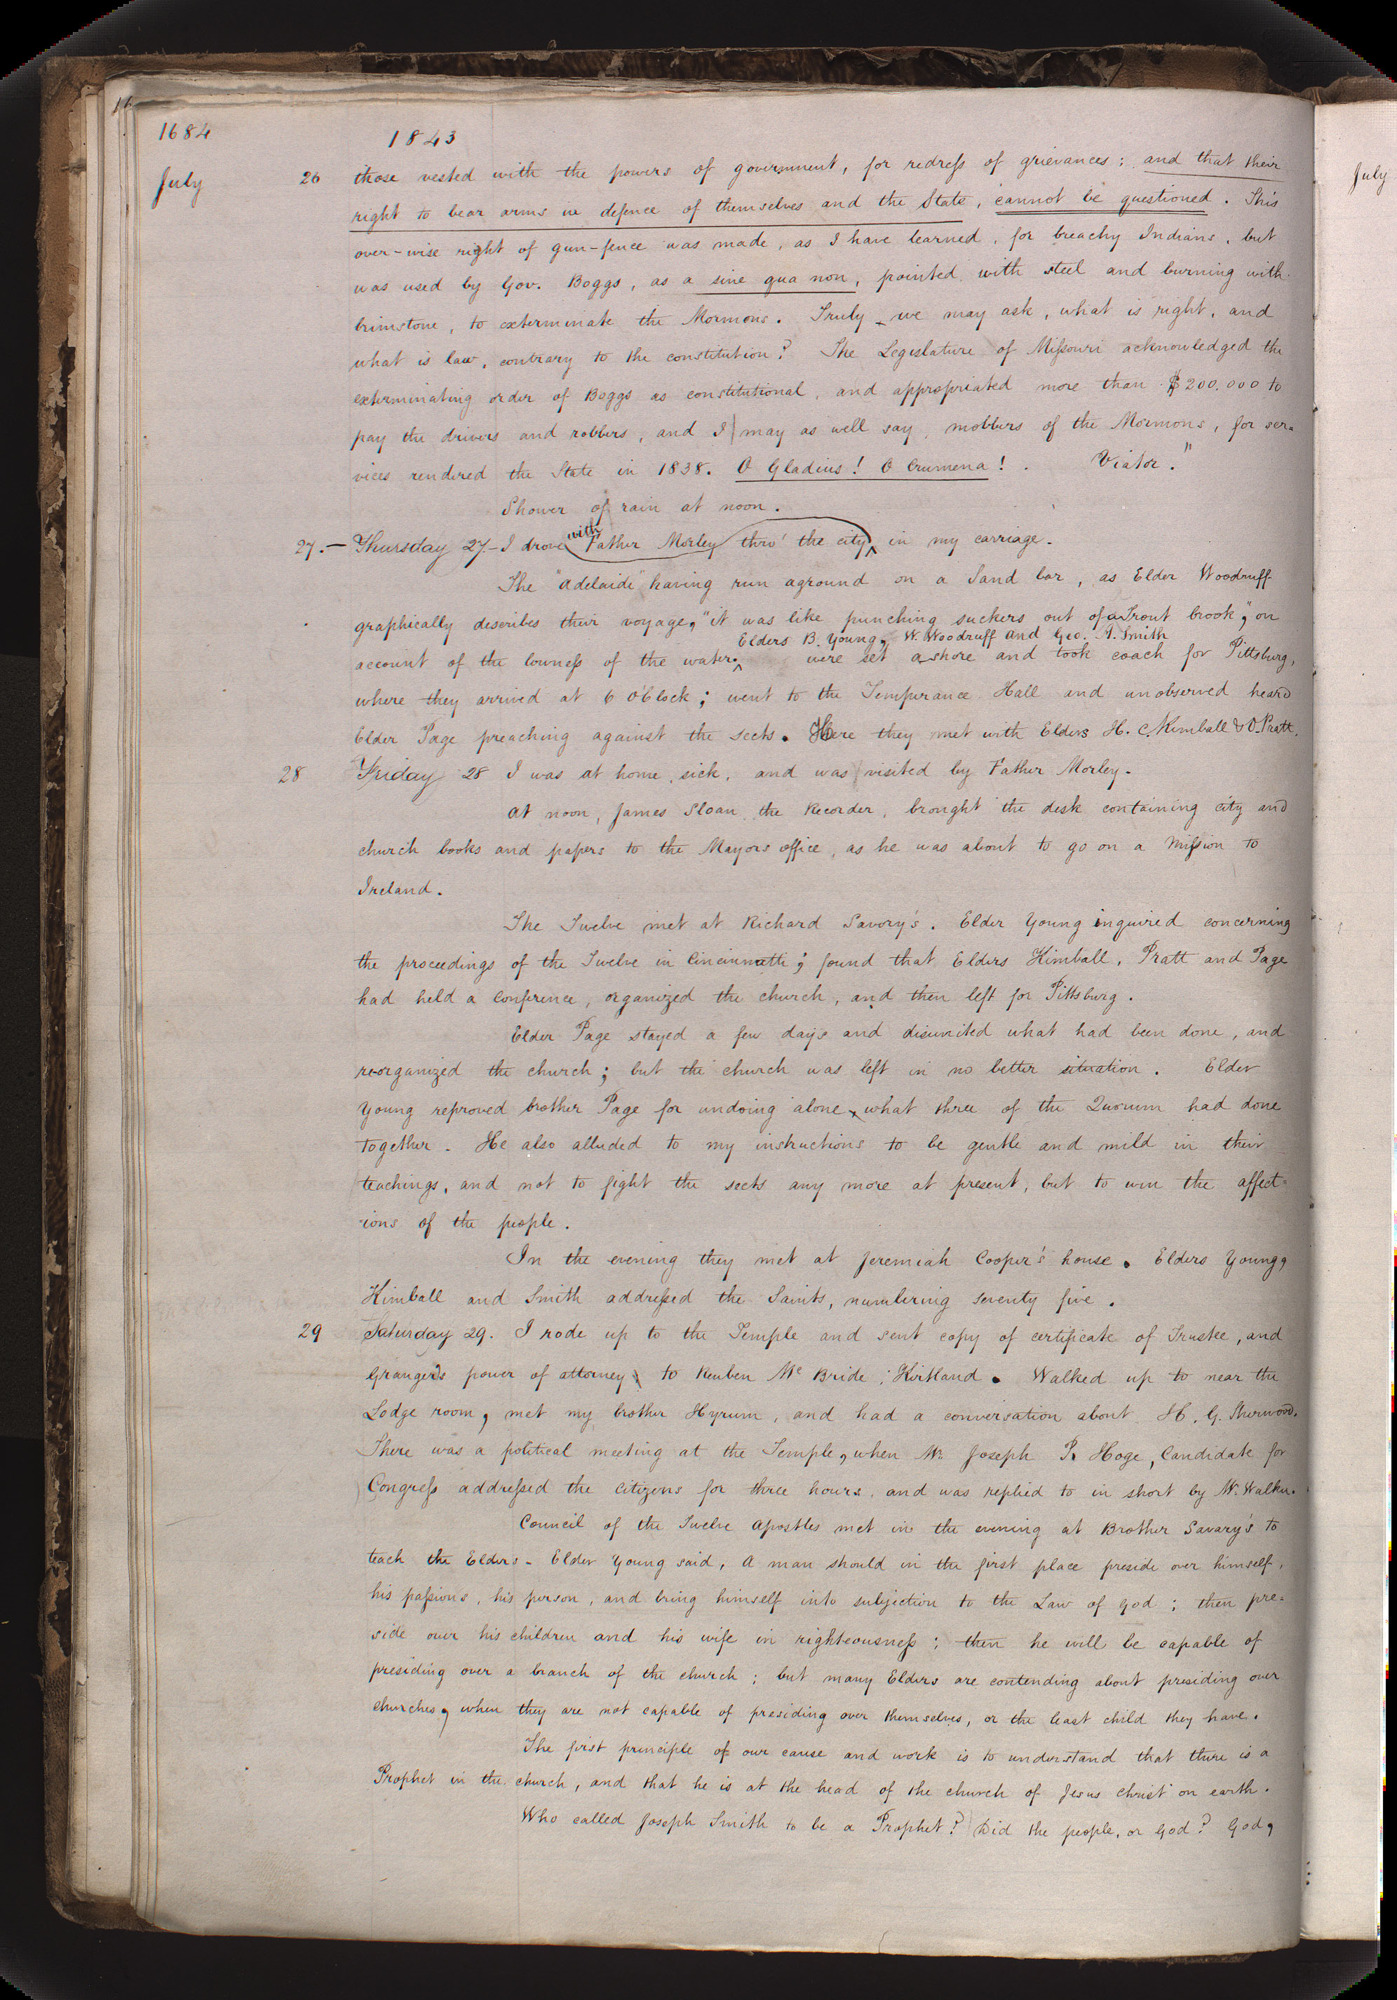 1684 1843
July 26 those vested with the powers of government, for redress of grievances; and that their
right to bear arms in defence of themselves and the State, cannot be questioned. This
over-wise right of gun-fence was made, as I have learned, for breachy Indians, but
was used by Gov. Boggs, as a sine qua non, pointed with steel and burning with
brimstone, to exterminate the Mormons. Truly we may ask, what is right, and
what is law, contrary to the constitution? The Legislature of Missouri acknowledged the
exterminating order of Boggs as constitutional, and appropriated more than $200.000 to
pay the drivers and robbers, and I may as well say, mobbers of the Mormons, for ser=
vices rendered the State in 1838. O Gladius! O Crumena! Viator."
Shower of rain at noon.
27.— Thursday 27— I drove with Father Morley thro' the city in my carriage.
The "Adelaide" having run aground on a Sand bar, as Elder Woodruff
graphically describes their voyage, "it was like punching suckers out of a Trout brook," on
Elders B. Young, W. Woodruff and Geo. A. Smith
account of the lowness of the water; were set ashore and took coach for Pittsburg,
where they arrived at 6 O'Clock; went to the Temperance Hall and unobserved heard
Elder Page preaching against the sects. Here they met with Elders H. C. Kimball & O. Pratt.
28 Friday 28 I was at home sick, and was visited by Father Morley.
At noon, James Sloan, the Recorder, brought the desk containing city and
church books and papers to the Mayors office, as he was about to go on a Mission to
Ireland.
The Twelve met at Richard Savory's. Elder Young inquired concerning
the proceedings of the Twelve in Cincinnatti; found that Elders Kimball, Pratt and Page
had held a Conference, organized the church, and then left for Pittsburg.
Elder Page stayed a few days and disunited what had been done, and
re-organized the church; but the church was left in no better situation. Elder
Young reproved brother Page for undoing alone, what three of the Quorum had done
together. He also alluded to my instructions to be gentle and mild in their
teachings, and not to fight the sects any more at present, but to win the affect=
ions of the people.
In the evening they met at Jeremiah Cooper's house. Elders Young,
Kimball and Smith addressed the Saints, numbering seventy five.
29 Saturday 29. I rode up to the Temple and sent copy of certificate of Trustee, and
Granger's power of attorney to Reuben Mc Bride; Kirtland. Walked up to near the
Lodge room, met my brother Hyrum, and had a conversation about H. G. Sherwood.
There was a political meeting at the Temple, when Mr. Joseph P. Hoge, Candidate for
Congress addressed the Citizens for three hours, and was replied to in short by Mr. Walker.
Council of the Twelve Apostles met in the evening at Brother Savary's to
teach the Elders— Elder Young said, A man should in the first place preside over himself,
his passions, his person, and bring himself into subjection to the Law of God; then pre=
side over his children and his wife in righteousness; then he will be capable of
presiding over a branch of the church; but many Elders are contending about presiding over
churches, when they are not capable of presiding over themselves, or the least child they have.
The first principle of our cause and work is to understand that there is a
Prophet in the church, and that he is at the head of the church of Jesus Christ on earth.
Who called Joseph Smith to be a Prophet? Did the people, or God? God,
July